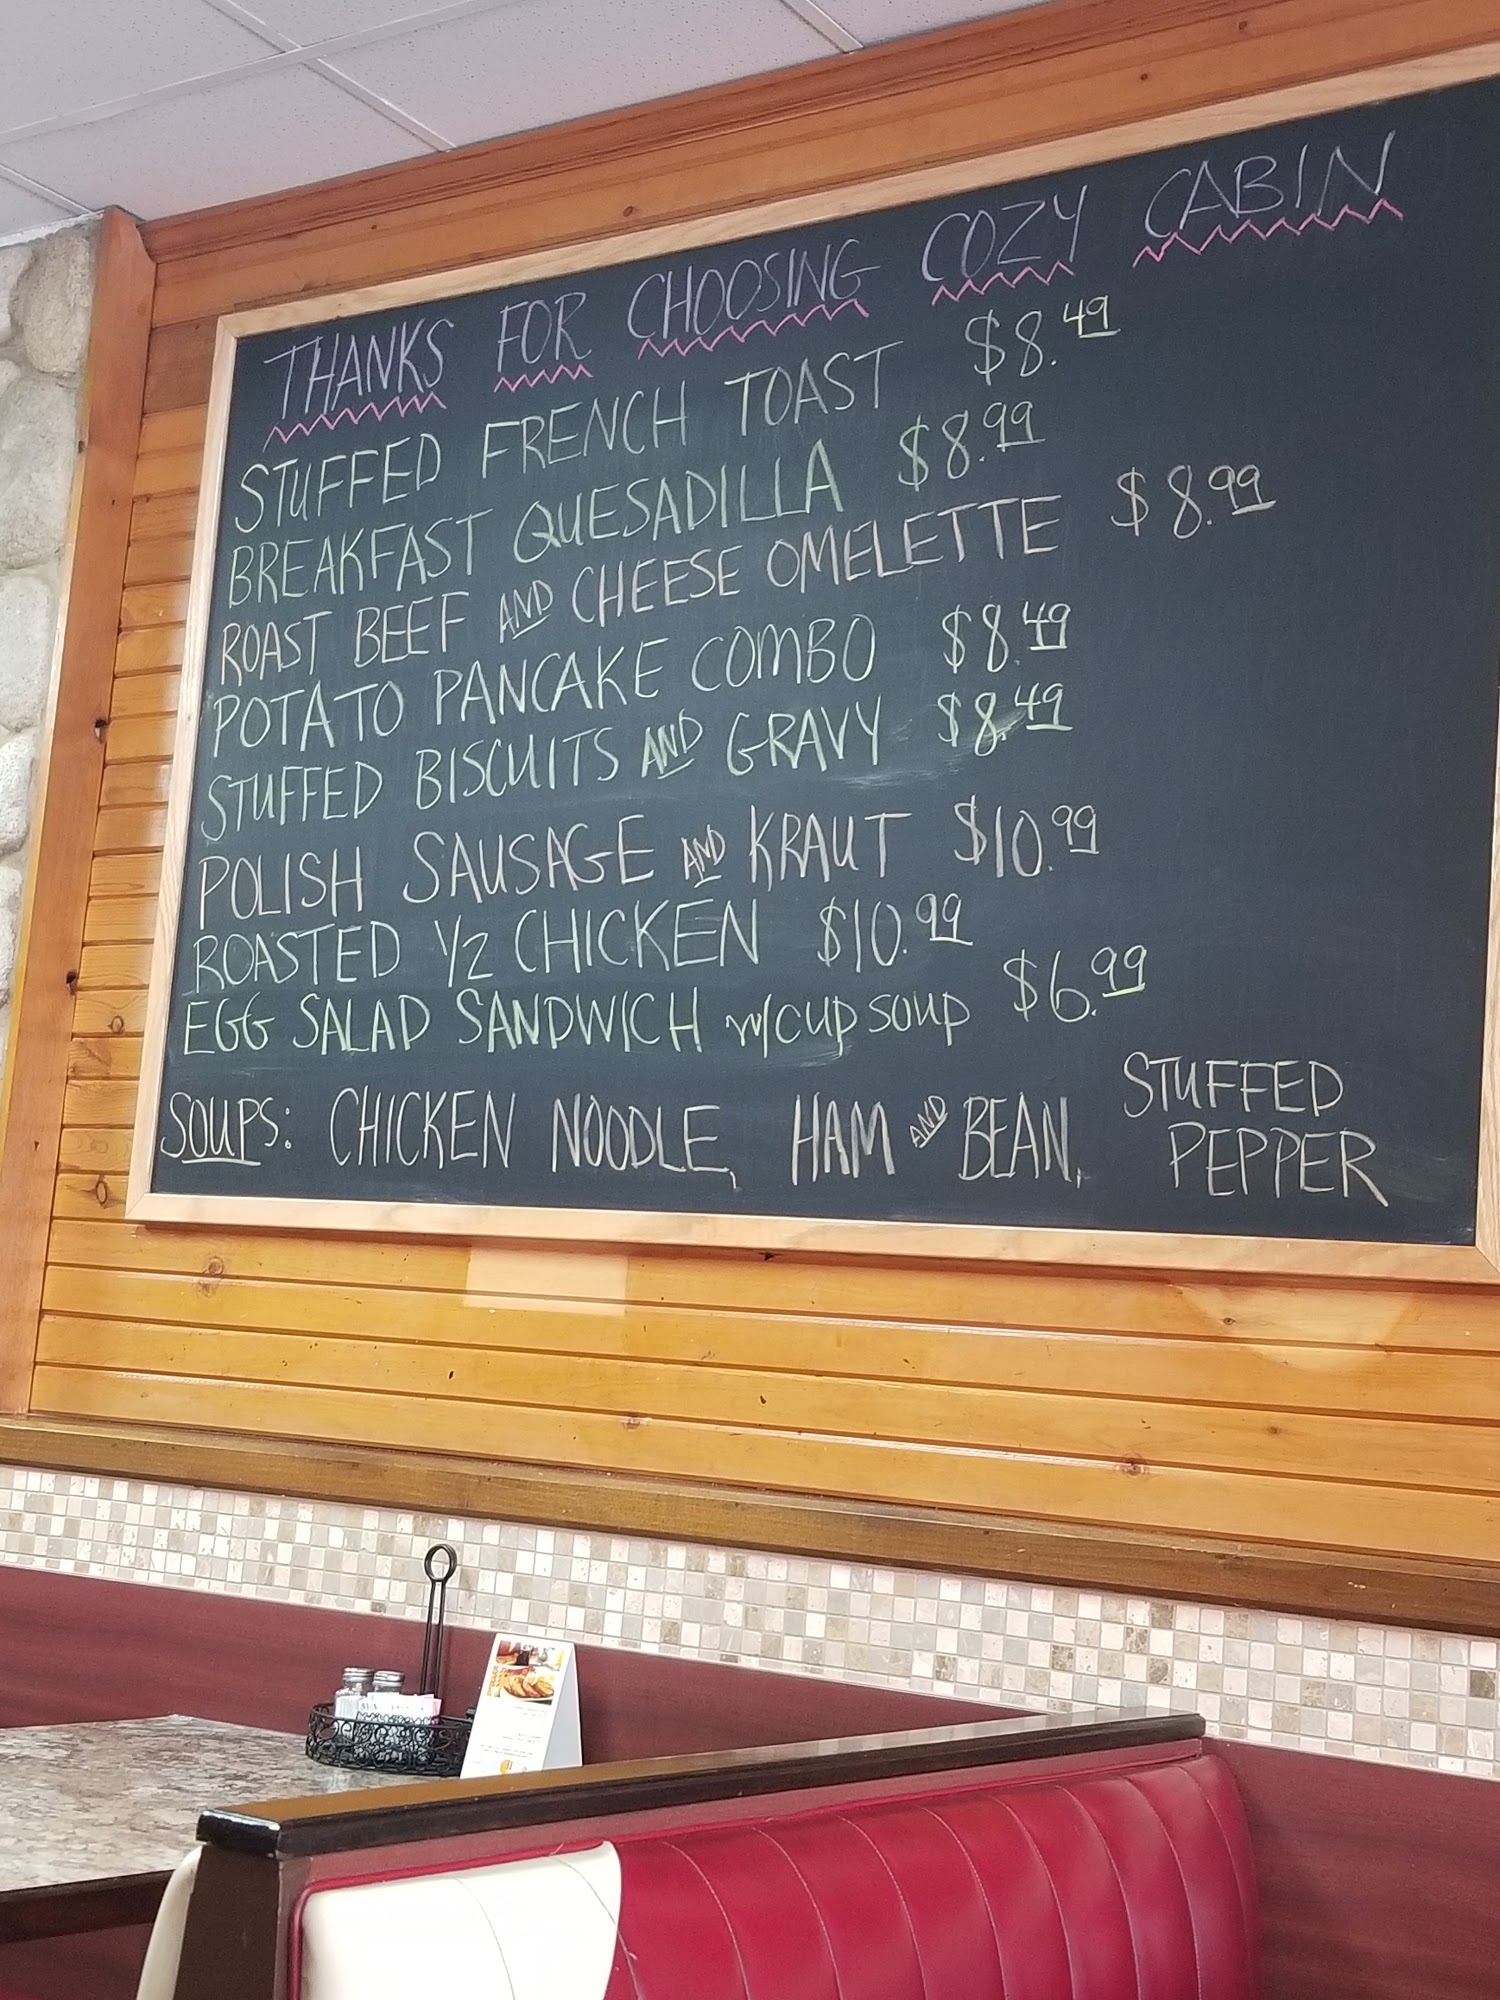 THANKS FOR CHOOSING COZY CABIN
STUFFED FRENCH TOAST $8.49
BREAKFAST QUESADILLA $8.99
ROAST BEEF AND CHEESE OMELETTE $8.99
POTATO PANCAKE COMBO $8.49
STUFFED BISCUITS AND GRAVY $8.49
POLISH SAUSAGE AND KRAUT $10.99
ROASTED 1/2 CHICKEN $10.99
EGG SALAD SANDWICH w/CUP SOUP $6.99
SOUPS: CHICKEN NOODLE, HAM AND BEAN, STUFFED
PEPPER